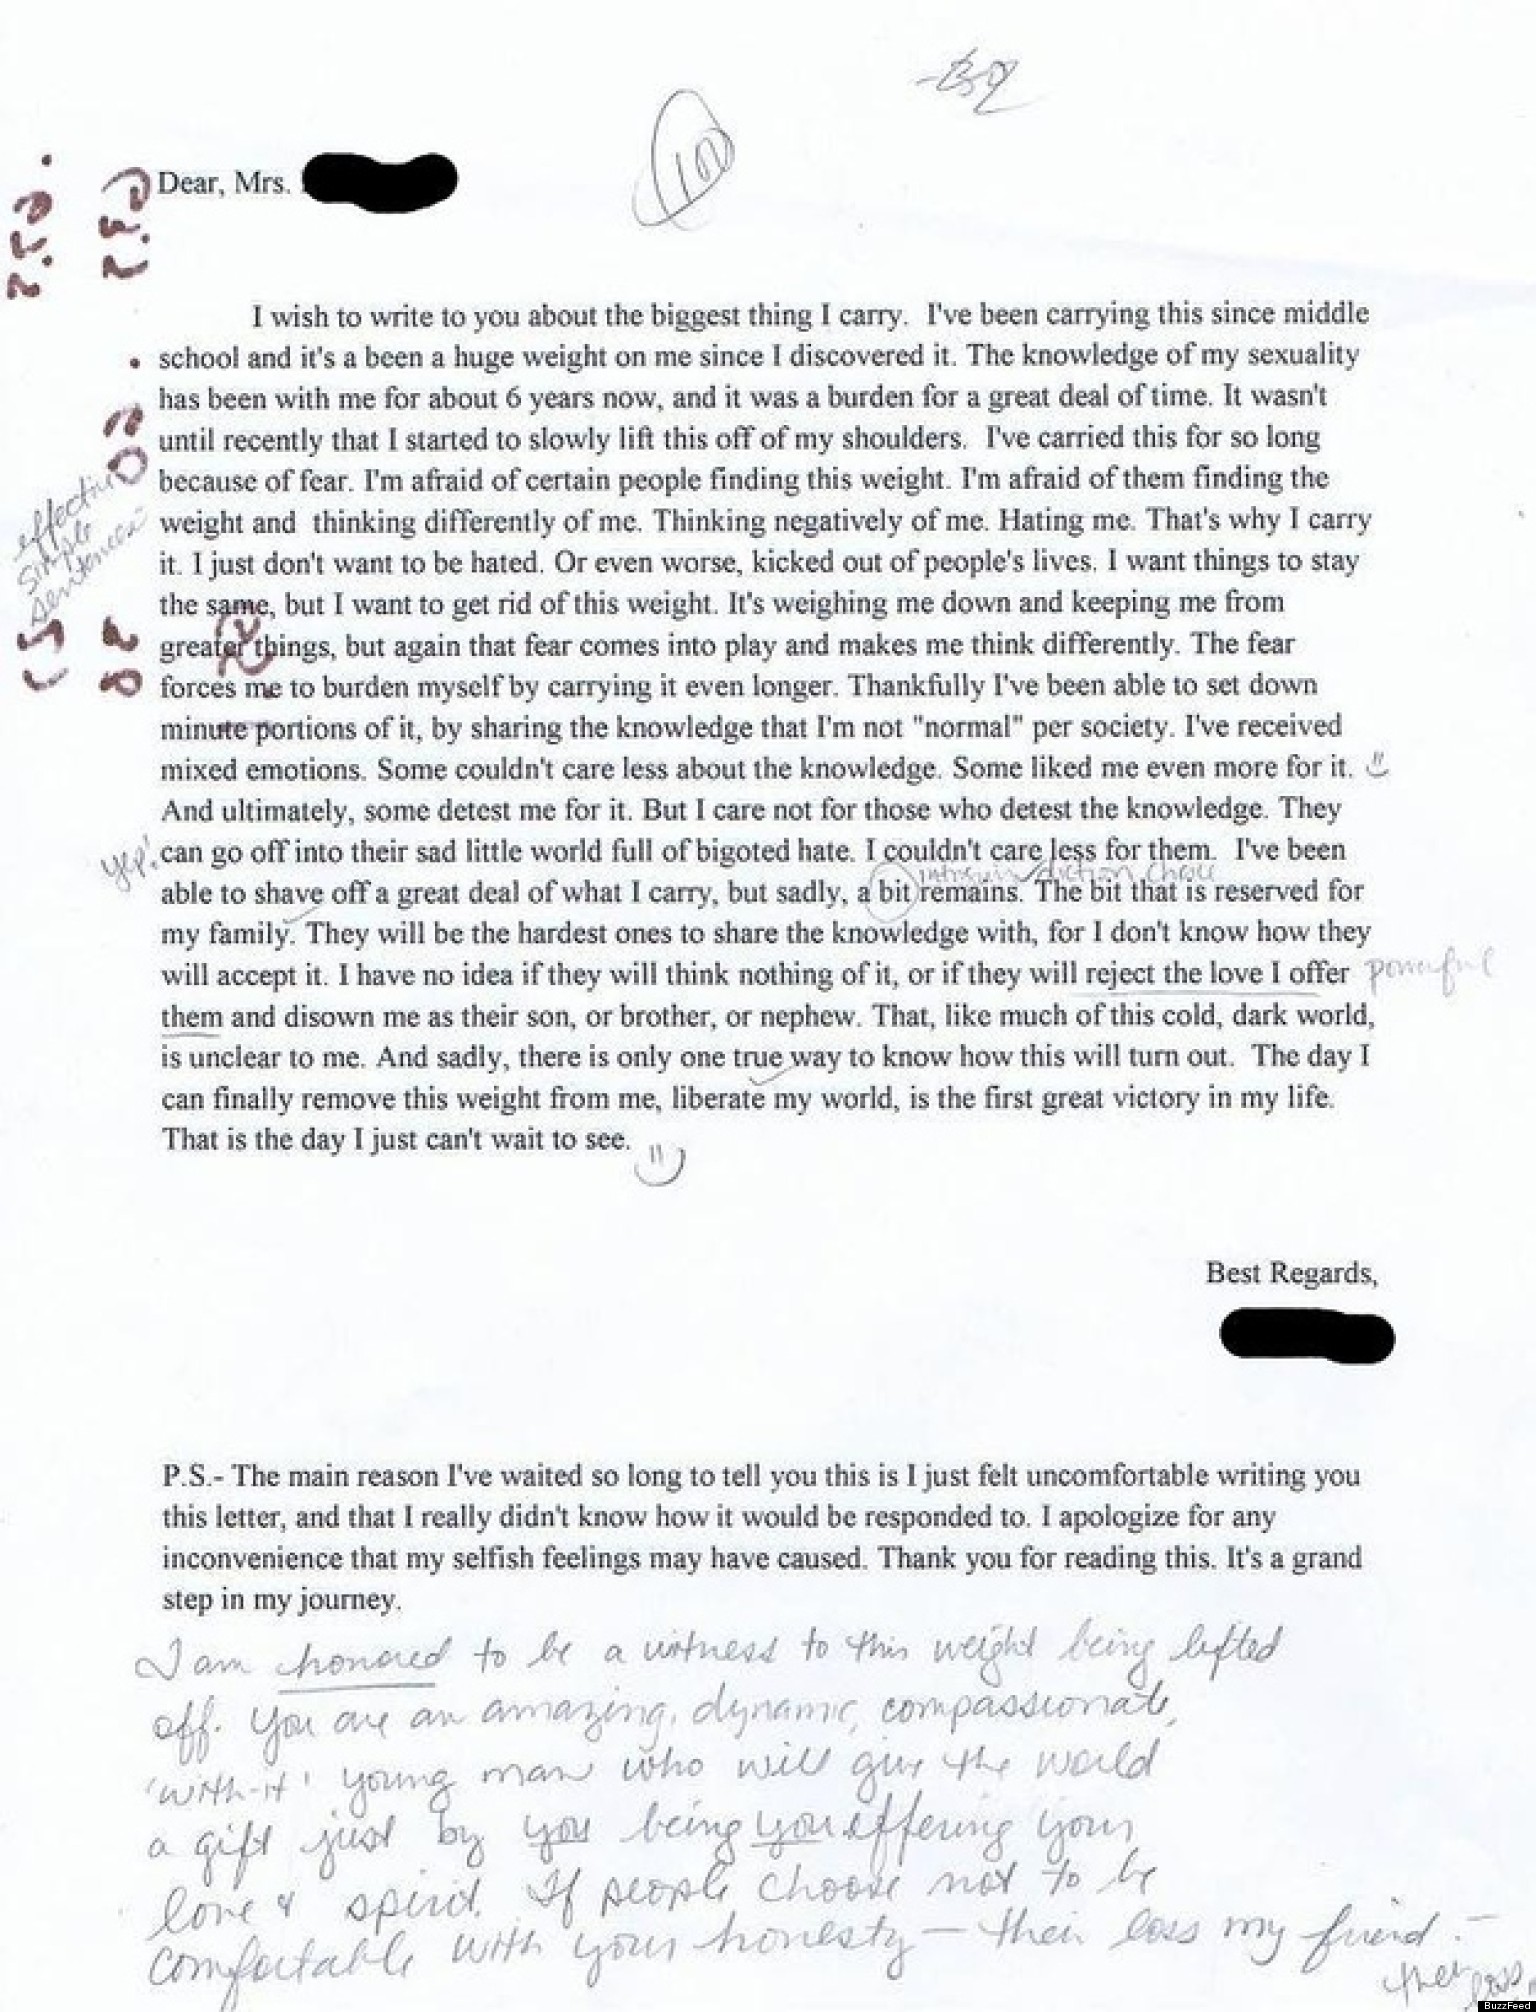 100
Dear, Mrs.
I wish to write to you about the biggest thing I carry.  I've been carrying this since middle
school and it's a been a huge weight on me since I discovered it. The knowledge of my sexuality
has been with me for about 6 years now, and it was a burden for a great deal of time. It wasn't
until recently that I started to slowly lift this off of my shoulders.  I've carried this for so long
because of fear. I'm afraid of certain people finding this weight. I'm afraid of them finding the
weight and  thinking differently of me. Thinking negatively of me. Hating me. That's why I carry
it. I just don't want to be hated. Or even worse, kicked out of people's lives. I want things to stay
the same, but I want to get rid of this weight. It's weighing me down and keeping me from
greater things, but again that fear comes into play and makes me think differently. The fear
forces me to burden myself by carrying it even longer. Thankfully I've been able to set down
minute portions of it, by sharing the knowledge that I'm not "normal" per society. I've received
mixed emotions. Some couldn't care less about the knowledge. Some liked me even more for it.
And ultimately, some detest me for it. But I care not for those who detest the knowledge. They
can go off into their sad little world full of bigoted hate. I couldn't care less for them.  I've been
able to shave off a great deal of what I carry, but sadly, a bit remains. The bit that is reserved for
my family. They will be the hardest ones to share the knowledge with, for I don't know how they
will accept it. I have no idea if they will think nothing of it, or if they will reject the love I offer
them and disown me as their son, or brother, or nephew. That, like much of this cold, dark world,
is unclear to me. And sadly, there is only one true way to know how this will turn out.  The day I
can finally remove this weight from me, liberate my world, is the first great victory in my life.
That is the day I just can't wait to see.
effective
simple
sentences
yep!
diction choice
powerful
Best Regards,
P.S.- The main reason I've waited so long to tell you this is I just felt uncomfortable writing you
this letter, and that I really didn't know how it would be responded to. I apologize for any
inconvenience that my selfish feelings may have caused. Thank you for reading this. It's a grand
step in my journey.
I am honored to be a witness to this weight being lifted
off. You are an amazing, dynamic, compassionate,
'with-it' young man who will give the world
a gift just by you being you offering your
love & spirit. If people choose not to be
comfortable with your honesty — their loss my friend. —
their loss
BuzzFeed